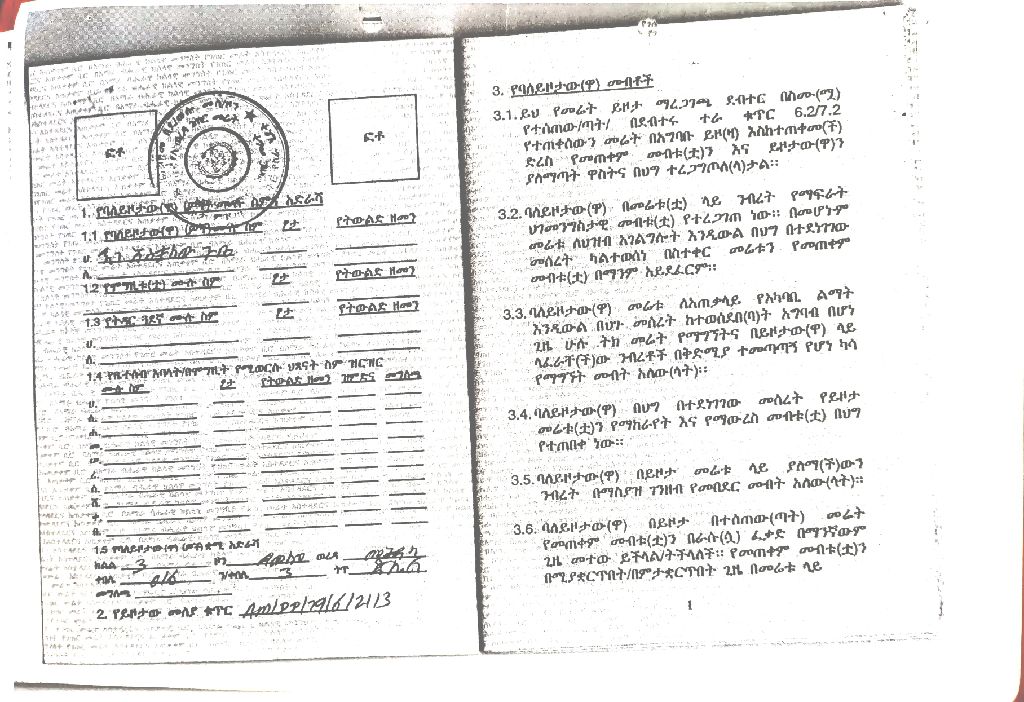 ፎቶ
ፎቶ
1. የባለይዞታው(ዋ) ስምና አድራሻ
1.1 የባለይዞታው(ዋ) ሙሉ ስም ፆታ የትውልድ ዘመን
ሀ.
ለ.
1.2 የሞግዚቱ(ቷ) ሙሉ ስም ፆታ የትውልድ ዘመን
1.3 የትዳር ጓደኛ ሙሉ ስም ፆታ የትውልድ ዘመን
ሀ.
ለ.
1.4 የቤተሰብ አባላት/በሞግዚት የሚወርሱ ህጻናት ስም ዝርዝር
ሙሉ ስም ፆታ የትውልድ ዘመን ዝምድና መግለጫ
ሀ.
ለ.
ሐ.
መ.
ሠ.
ረ.
ሰ.
ሸ.
ቀ.
በ.
1.5 የባለይዞታው(ዋ) ቋሚ አድራሻ
ክልል 3 ዞን ወረዳ
ቀበሌ 016 ን/ቀበሌ 3 ጎጥ
መግለጫ
2. የይዞታው መለያ ቁጥር Am/DD/79/6/2113
3. የባለይዞታው(ዋ) መብቶች
3.1. ይህ የመሬት ይዞታ ማረጋገጫ ደብተር በስሙ(ሟ)
የተሰጠው/ጣት/ በደብተሩ ተራ ቁጥር 6.2/7.2
የተጠቀሰውን መሬት በአግባቡ ይዞ(ዛ) እስከተጠቀመ(ች)
ድረስ የመጠቀም መብቱ(ቷ)ን እና ይዞታው(ዋ)ን
ያለማጣት ዋስትና በህግ ተረጋግጦለ(ላ)ታል።
3.2. ባለይዞታው(ዋ) በመሬቱ(ቷ) ላይ ንብረት የማፍራት
ህገመንግስታዊ መብቱ(ቷ) የተረጋገጠ ነው። በመሆኑም
መሬቱ ለህዝብ አገልግሎት እንዲውል በህግ በተደነገገው
መሰረት ካልተወሰነ በስተቀር መሬቱን የመጠቀም
መብቱ(ቷ) በማንም አይደፈርም።
3.3. ባለይዞታው(ዋ) መሬቱ ለአጠቃላይ የአካባቢ ልማት
እንዲውል በህጉ መሰረት ከተወሰደበ(ባ)ት አግባብ በሆነ
ጊዜ ሁሉ ትክ መሬት የማግኘትና በይዞታው(ዋ) ላይ
ላፈራቸ(ች)ው ንብረቶች በቅድሚያ ተመጣጣኝ የሆነ ካሳ
የማግኘት መብት አለው(ላት)።
3.4. ባለይዞታው(ዋ) በህግ በተደነገገው መሰረት የይዞታ
መሬቱ(ቷ)ን የማከራየት እና የማውረስ መብቱ(ቷ) በህግ
የተጠበቀ ነው።
3.5. ባለይዞታው(ዋ) በይዞታ መሬቱ ላይ ያለማ(ች)ውን
ንብረት በማስያዝ ገንዘብ የመበደር መብት አለው(ላት)።
3.6. ባለይዞታው(ዋ) በይዞታ በተሰጠው(ጣት) መሬት
የመጠቀም መብቱ(ቷ)ን በራሱ(ሷ) ፈቃድ በማንኛውም
ጊዜ መተው ይችላል/ትችላለች። የመጠቀም መብቱ(ቷ)ን
በሚያቋርጥበት/በምታቋርጥበት ጊዜ በመሬቱ ላይ
1